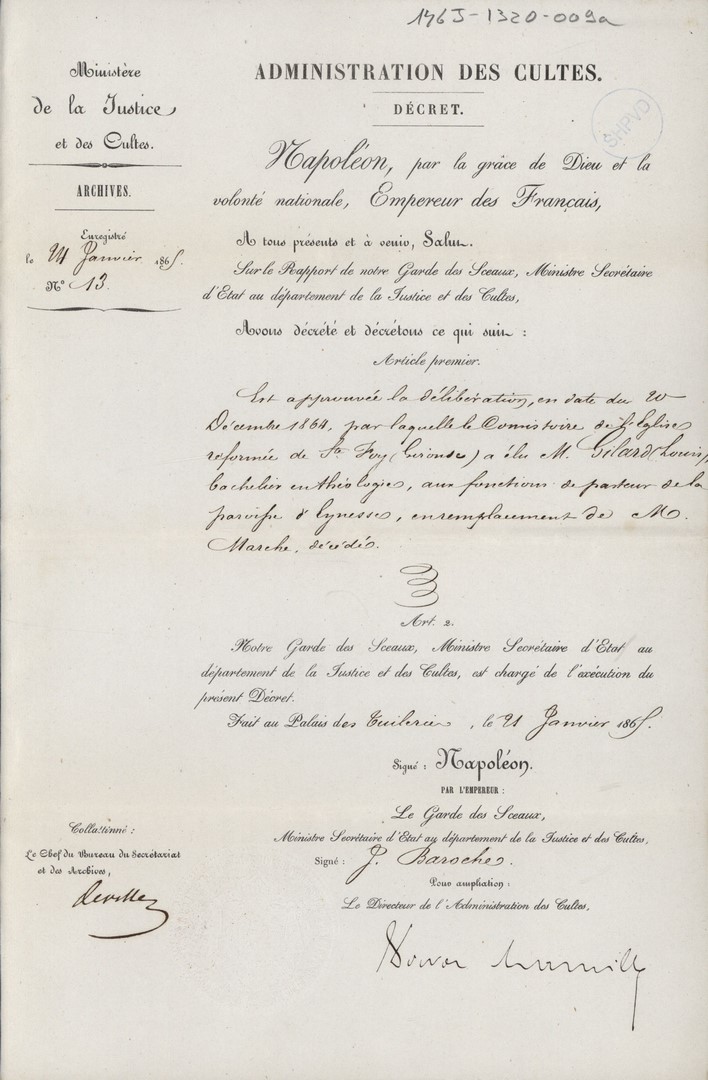 146J-1320-009a
Ministère
de la Justice
et des Cultes.
ARCHIVES.
Enregistré
le 21 Janvier 1865.
N° 13.
ADMINISTRATION DES CULTES.
DÉCRET.
SHPVD
Napoléon, par la grâce de Dieu et la
volonté nationale, Empereur des Français,
A tous présents et à venir, Salut.
Sur le Rapport de notre Garde des Sceaux, Ministre Secrétaire
d'Etat au département de la Justice et des Cultes,
Avons décrété et décrétons ce qui suit :
Article premier.
Est approuvée la délibération, en date du 20
Décembre 1864, par laquelle le Consistoire de l'Eglise
reformée de Ste Foy (Gironde) a élu M. Gilard (Louis),
bachelier en théologie, aux fonctions de pasteur de la
paroisse d'Eynesse, en remplacement de M.
Marche, décédé.
Art. 2.
Notre Garde des Sceaux, Ministre Secrétaire d'Etat au
département de la Justice et des Cultes, est chargé de l'exécution du
présent Décret.
Fait au Palais des Tuileries, le 21 Janvier 1865.
Signé : Napoléon.
PAR L'EMPEREUR :
Le Garde des Sceaux,
Ministre Secrétaire d'Etat au département de la Justice et des Cultes,
Signé : J. Baroche.
Pour ampliation :
Le Directeur de l'Administration des Cultes,
Collationné :
Le Chef du Bureau du Secrétariat
et des Archives,